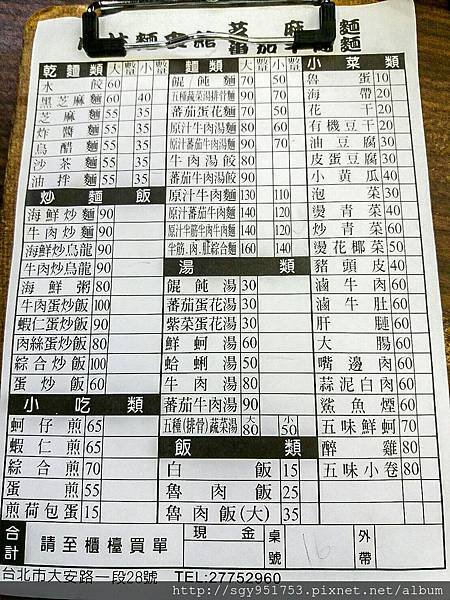 乾麵類 大 數量 小 數量
水餃 60
黑芝麻麵 60 40
芝麻麵 55 35
炸醬麵 55 35
烏醋麵 55 35
沙茶麵 55 35
油拌麵 55 35
炒麵飯
海鮮炒麵 90
牛肉炒麵 90
海鮮炒烏龍 90
牛肉炒烏龍 90
海鮮粥 80
牛肉蛋炒飯 100
蝦仁蛋炒飯 90
肉絲蛋炒飯 80
綜合炒飯 100
蛋炒飯 60
小吃類
蚵仔煎 65
蝦仁煎 65
綜合煎 70
蛋煎 55
煎荷包蛋 15
麵類 大 數量 小 數量
餛飩麵 70 50
五種蔬菜湯排骨麵 90 70
蕃茄蛋花麵 70 50
原汁牛肉湯麵 80 60
原汁蕃茄牛肉湯麵 90 70
牛肉湯餃 80
蕃茄牛肉湯餃 90
原汁牛肉麵 130 110
原汁蕃茄牛肉麵 140 120
原汁半筋半肉牛肉麵 140 120
半筋、肉、肚綜合麵 160 140
湯類
餛飩湯 30
蕃茄蛋花湯 30
紫菜蛋花湯 30
鮮蚵湯 50
蛤蜊湯 50
牛肉湯 80
蕃茄牛肉湯 90
五種(排骨)蔬菜湯 大80 小50
飯類
白飯 15
魯肉飯 25
魯肉飯(大) 35
小菜類
魯蛋 10
海帶 20
花干 20
有機豆干 20
油豆腐 30
皮蛋豆腐 30
小黃瓜 40
泡菜 30
燙青菜 40
炒青菜 60
燙花椰菜 50
豬頭皮 40
滷牛肉 60
滷牛肚 60
肝腱 60
大腸 60
嘴邊肉 60
蒜泥白肉 60
鯊魚煙 60
五味鮮蚵 70
醉雞 80
五味小卷 80
合計 請至櫃檯買單 現金 桌號 16 外帶
台北市大安路一段28號 TEL:27752960
http://sgy951753.pixnet.net/album